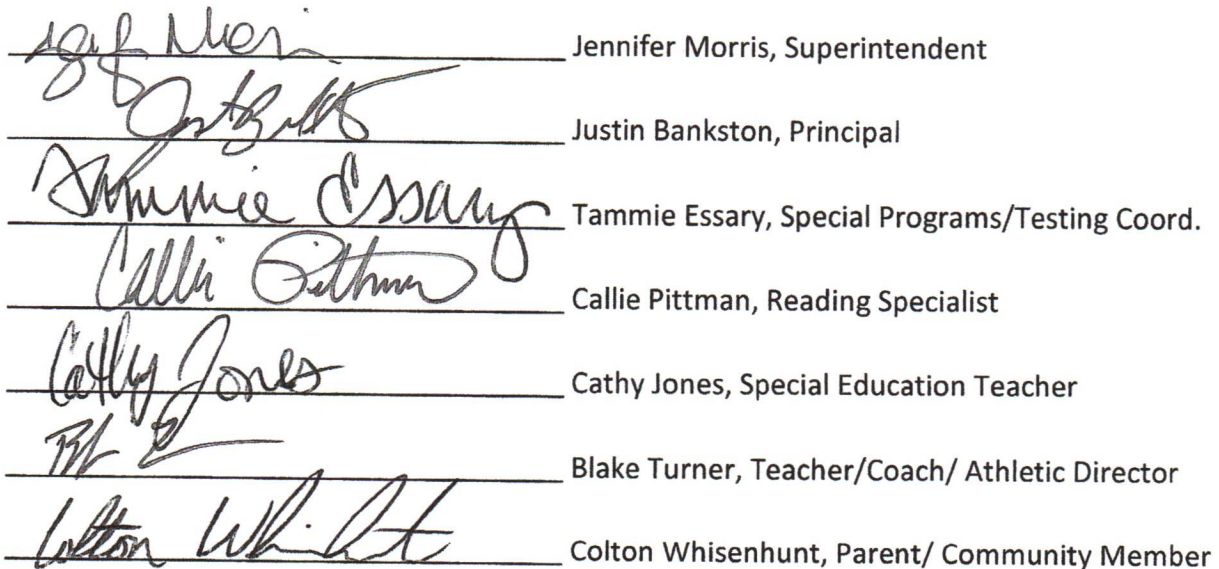 Jennifer Morris, Superintendent
Justin Bankston, Principal
Tammie Essary Tammie Essary, Special Programs/Testing Coord.
Callie Pittman Callie Pittman, Reading Specialist
Cathy Jones Cathy Jones, Special Education Teacher
Blake Turner, Teacher/Coach/ Athletic Director
Colton Colton Whisenhunt, Parent/ Community Member